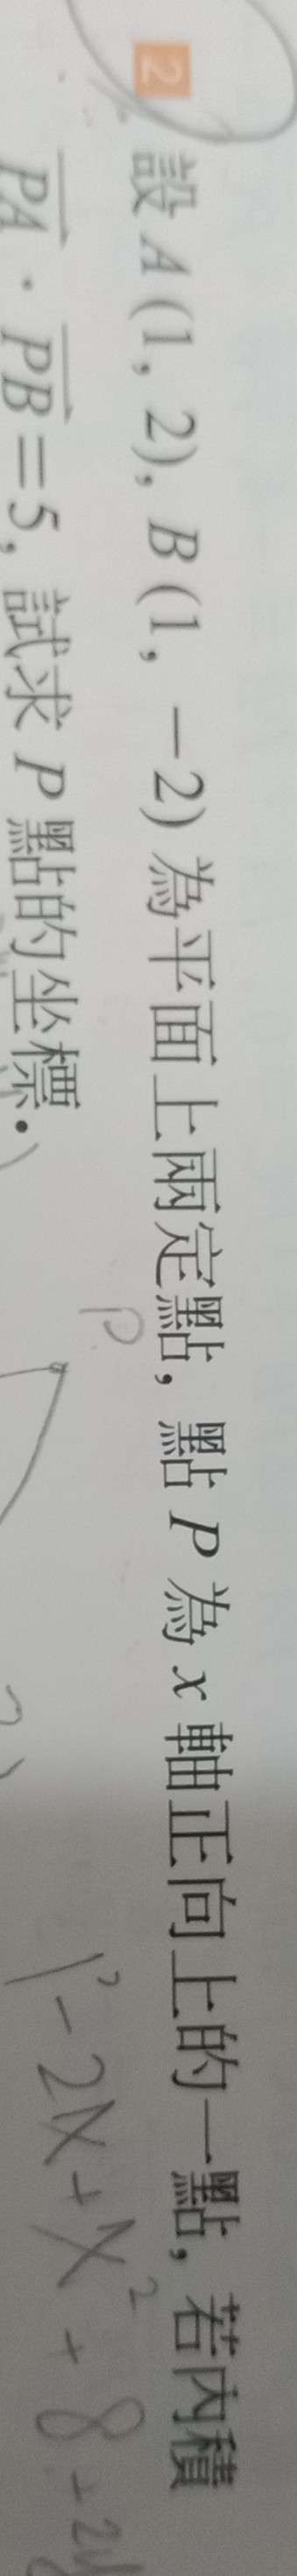 2 設 A (1, 2), B (1, −2) 為平面上兩定點, 點 P 為 x 軸正向上的一點, 若內積
PA · PB = 5, 試求 P 點的坐標.
P
1² - 2x + x² + 8